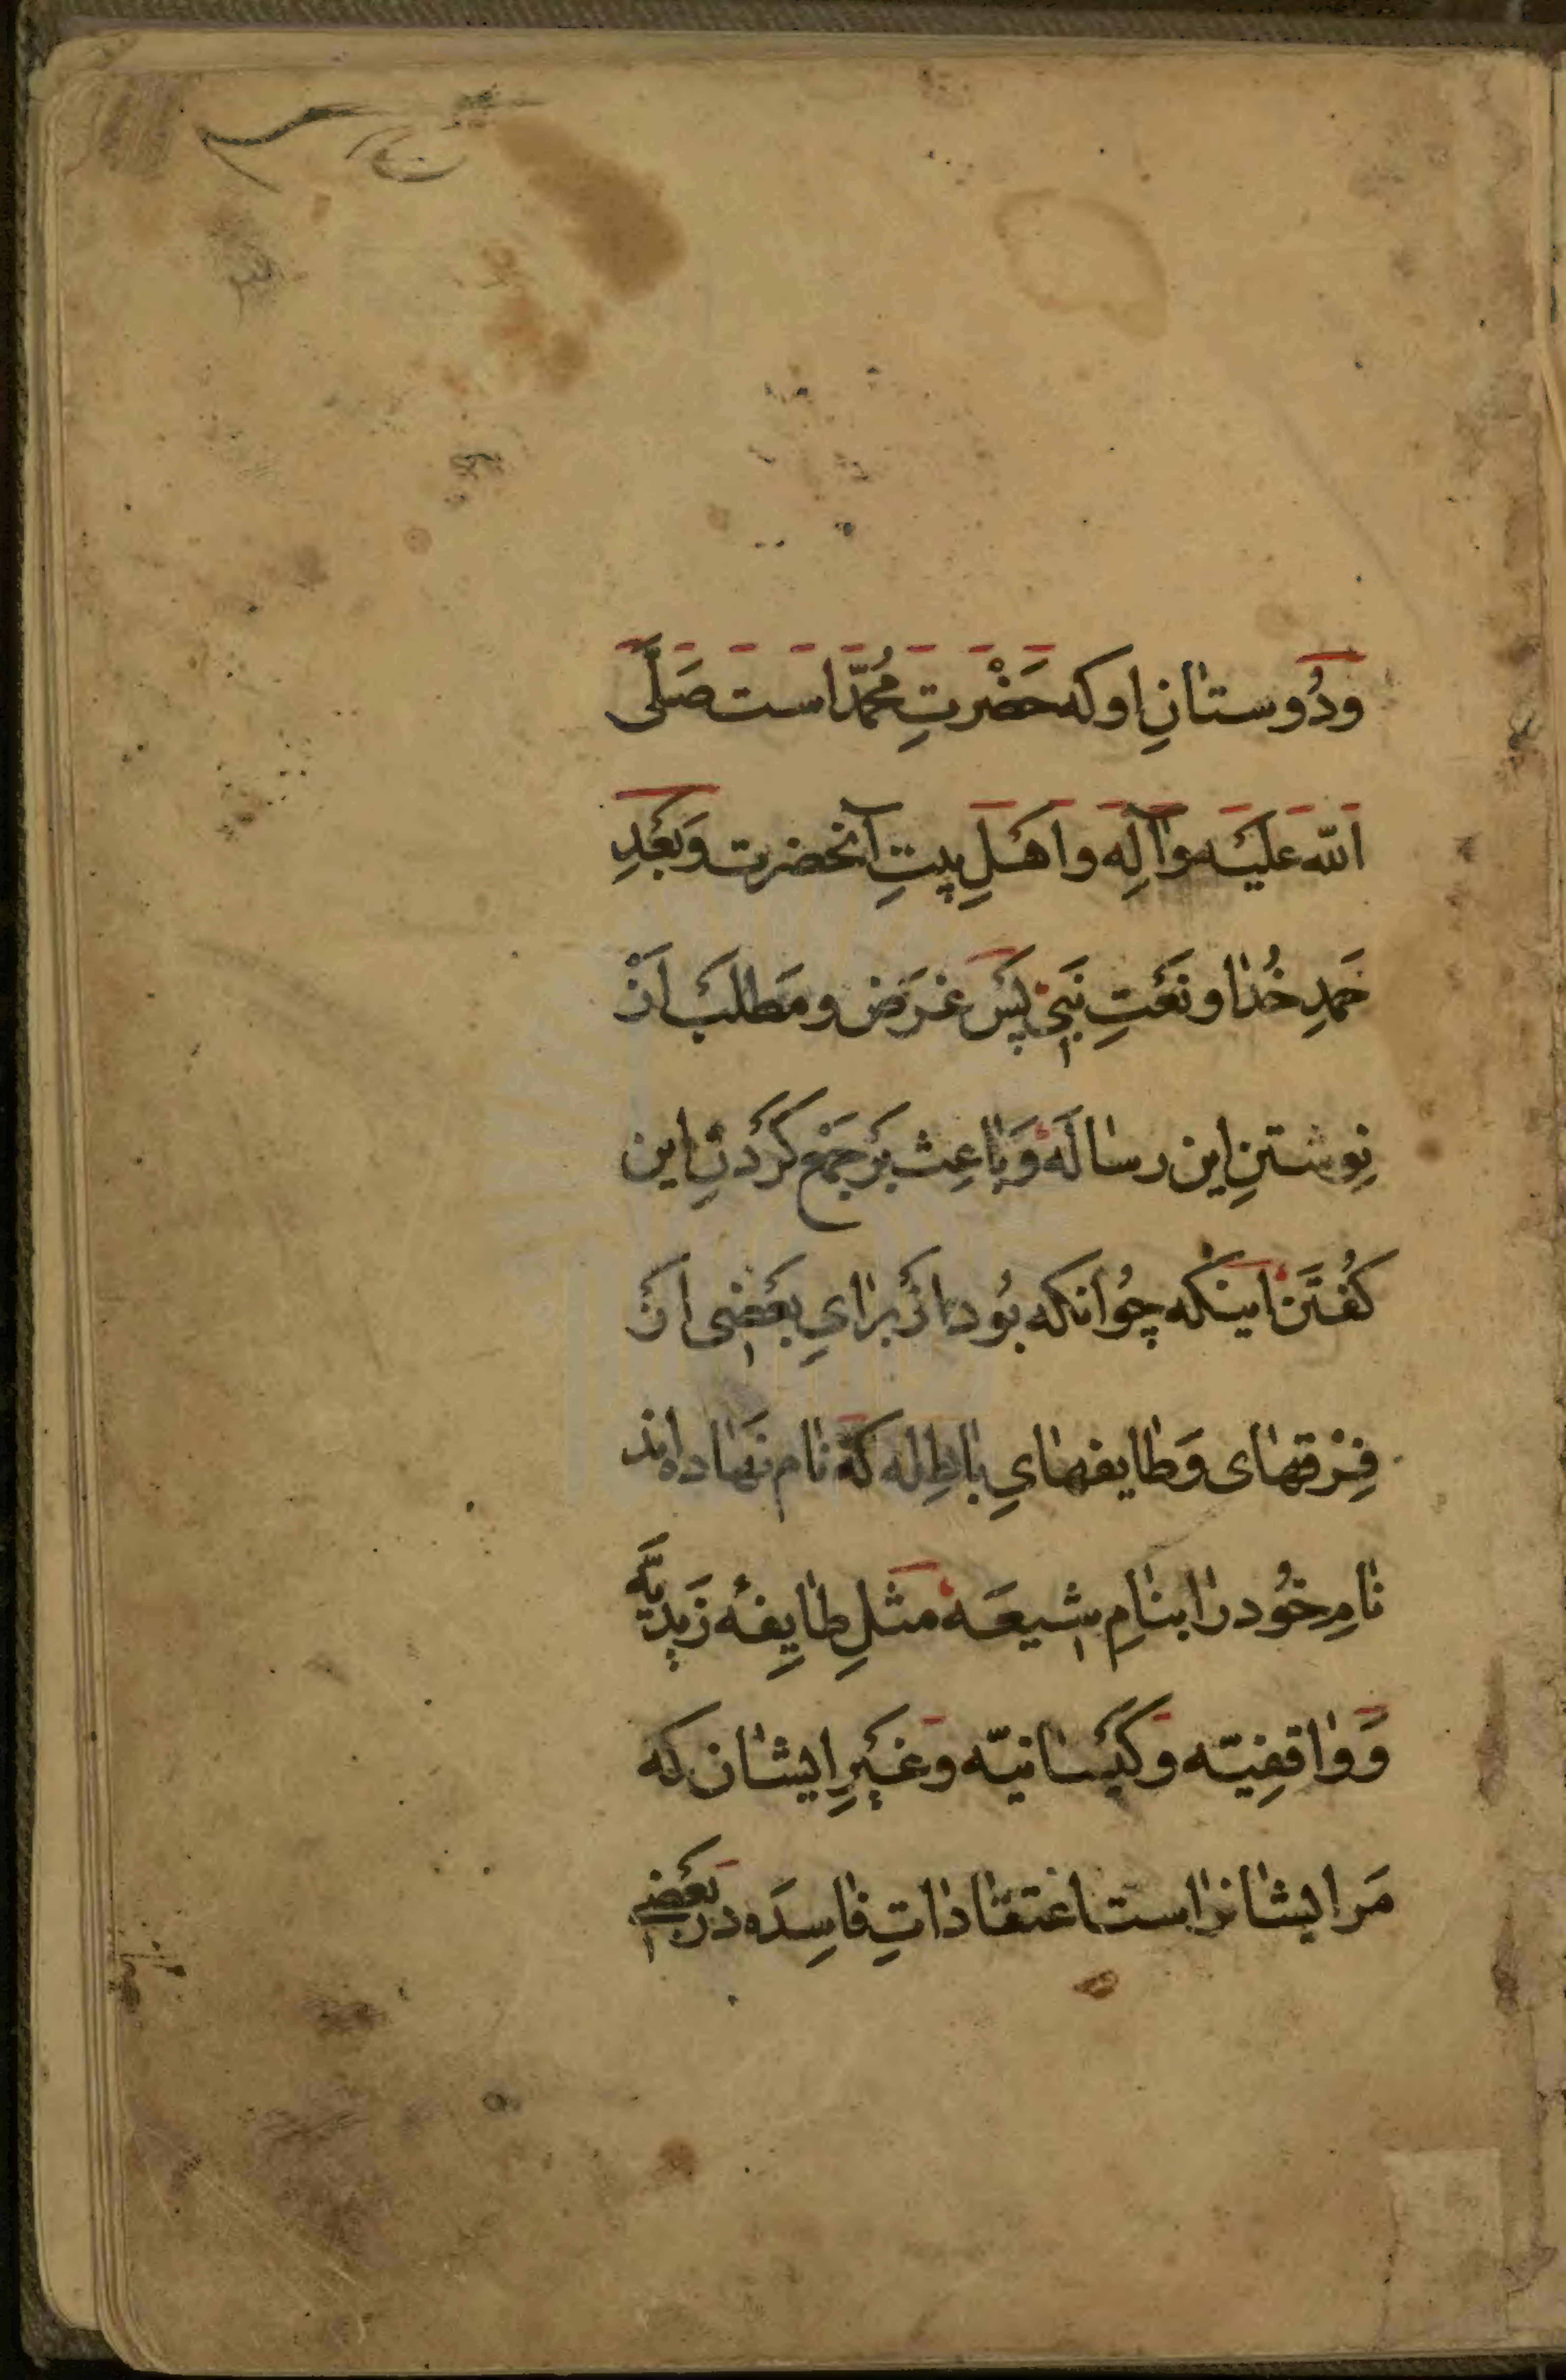 ودُوستانِ او که حَضْرتِ مُحمّد است صَلَّی
الله عَلیَه وآلِه واَهَلِ بیتِ آنحضرت وَبَعَدِ
حَمدِ خُدا ونَعَتِ نَبی پَس غَرَض ومَطلَب اَز
نِوشتنِ این رسالَه وَباعِث بَر جَمَع کَردَنِ این
کفُتَن اینکه چوُانکه بوُد از برایِ بَعَضی اَز
فِرْقهای وَطایفهایِ باطِله کِه نام نَهاده‌اند
نامِ خوُد را بنامِ شیعَه مثلِ طایِفهٔ زَیدیَّه
وَواقفِیّه وکَیَسانیّه وغَیَرِ ایشان که
مَر ایشانرا است اعتقاداتِ فاسِدَه در بَعَضی